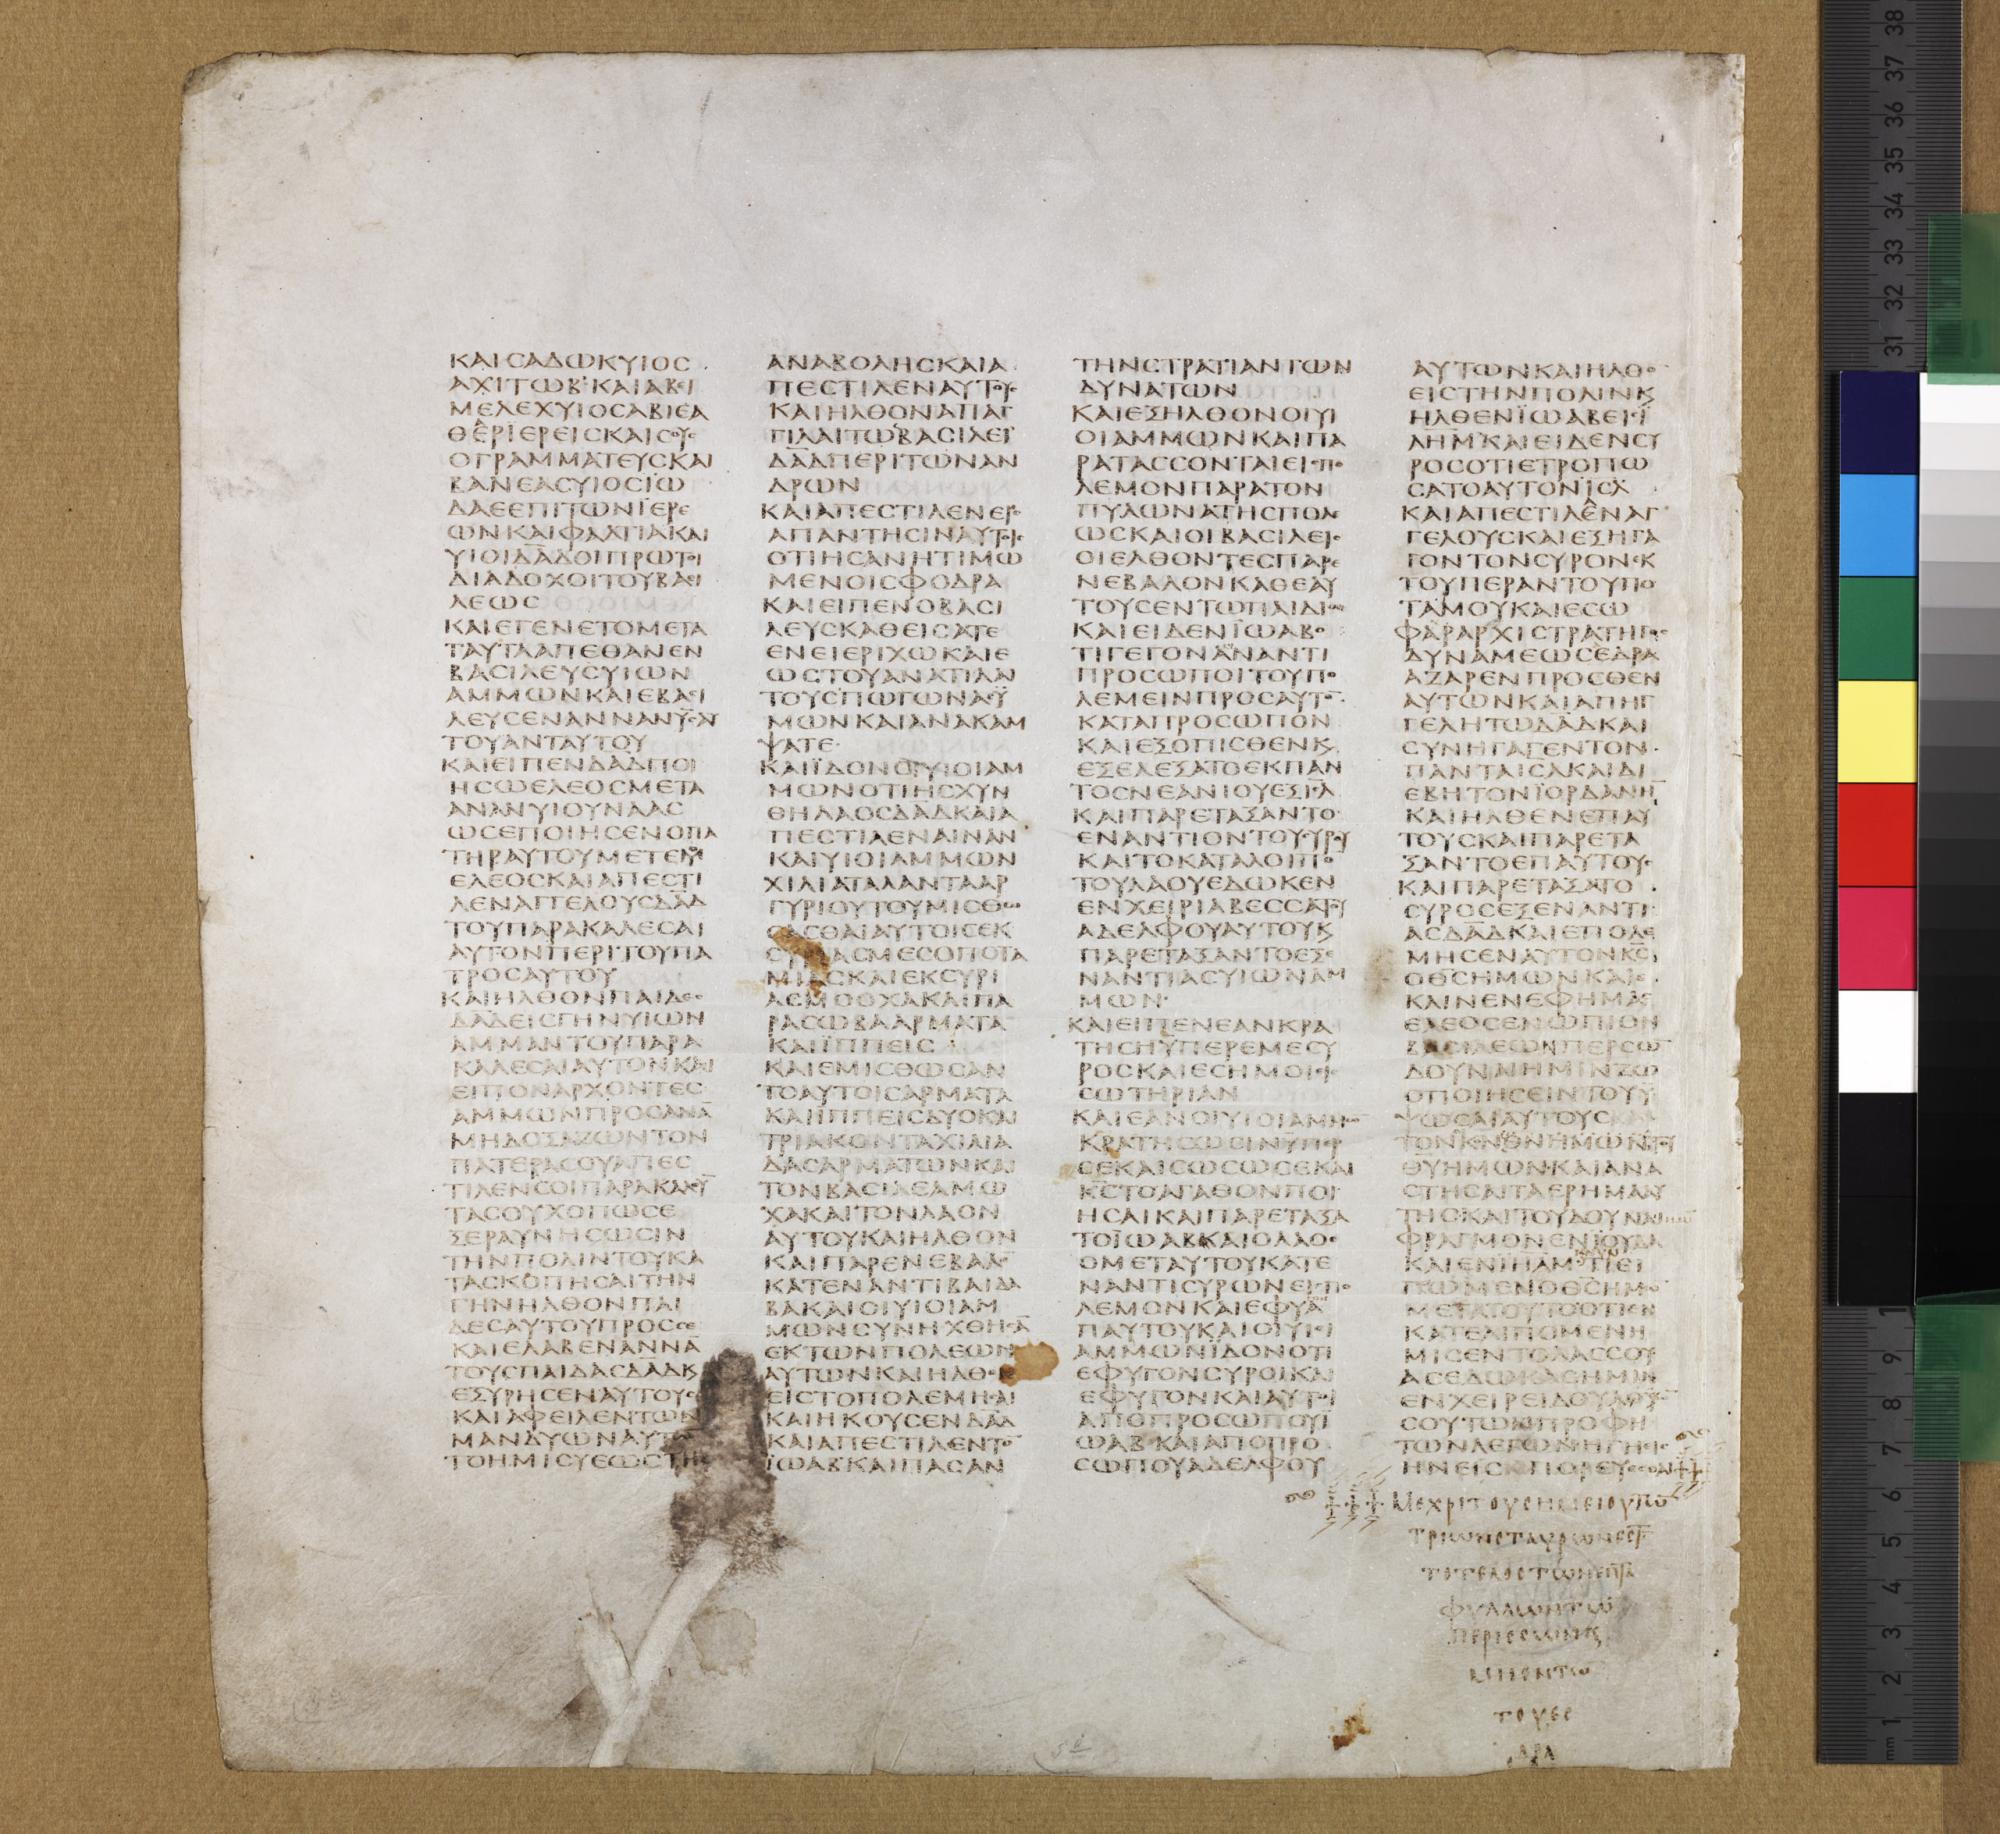 ΚΑΙΣΑΔΩΚΥΙΟΣ
ΑΧΙΤΩΒΚΑΙΑΒΙ
ΜΕΛΕΧΥΙΟΣΑΒΙΕΑ
ΘΕΡΙΕΡΕΙΣΚΑΙΣΟΥ
ΟΓΡΑΜΜΑΤΕΥΣΚΑΙ
ΒΑΝΕΑΣΥΙΟΣΪΩ
ΔΑΕΕΠΙΤΩΝΪΕΡΕ
ΩΝΚΑΙΦΑΛΤΙΑΚΑΙ
ΥΙΟΙΔΑΔΟΙΠΡΩΤΟΙ
ΔΙΑΔΟΧΟΙΤΟΥΒΑΣΙ
ΛΕΩΣ
ΚΑΙΕΓΕΝΕΤΟΜΕΤΑ
ΤΑΥΤΑΑΠΕΘΑΝΕΝ
ΒΑΣΙΛΕΥΣΥΙΩΝ
ΑΜΜΩΝΚΑΙΕΒΑΣΙ
ΛΕΥΣΕΝΑΝΝΑΝΥΣΑΥ
ΤΟΥΑΝΤΑΥΤΟΥ
ΚΑΙΕΙΠΕΝΔΑΔΠΟΙ
ΗΣΩΕΛΕΟΣΜΕΤΑ
ΑΝΑΝΥΙΟΥΝΑΑΣ
ΩΣΕΠΟΙΗΣΕΝΟΠΑ
ΤΗΡΑΥΤΟΥΜΕΤΕΜΟΥ
ΕΛΕΟΣΚΑΙΑΠΕΣΤΙ
ΛΕΝΑΓΓΕΛΟΥΣΔΑΔ
ΤΟΥΠΑΡΑΚΑΛΕΣΑΙ
ΑΥΤΟΝΠΕΡΙΤΟΥΠΑ
ΤΡΟΣΑΥΤΟΥ
ΚΑΙΗΛΘΟΝΠΑΙΔΕΣ
ΔΑΔΕΙΣΓΗΝΥΙΩΝ
ΑΜΜΑΝΤΟΥΠΑΡΑ
ΚΑΛΕΣΑΙΑΥΤΟΝΚΑΙ
ΕΙΠΟΝΑΡΧΟΝΤΕΣ
ΑΜΜΩΝΠΡΟΣΑΝΑ̅
ΜΗΔΟΞΑΖΩΝΤΟΝ
ΠΑΤΕΡΑΣΟΥΑΠΕΣ
ΤΙΛΕΝΣΟΙΠΑΡΑΚΑΛΟΥ̅
ΤΑΣΟΥΧΟΠΩΣΕ
ΞΕΡΑΥΝΗΣΩΣΙΝ
ΤΗΝΠΟΛΙΝΤΟΥΚΑ
ΤΑΣΚΟΠΗΣΑΙΤΗΝ
ΓΗΝΗΛΘΟΝΠΑΙ
ΔΕΣΑΥΤΟΥΠΡΟΣΣΕ
ΚΑΙΕΛΑΒΕΝΑΝΝΑ̅
ΤΟΥΣΠΑΙΔΑΣΔΑΔΚ
ΕΞΥΡΗΣΕΝΑΥΤΟΥΣ
ΚΑΙΑΦΕΙΛΕΝΤΩΝ
ΜΑΝΔΥΩΝΑΥΤ
ΤΟΗΜΙΣΥΕΩΣΤΗΣ
ΑΝΑΒΟΛΗΣΚΑΙΑ
ΠΕΣΤΙΛΕΝΑΥΤΟΥΣ
ΚΑΙΗΛΘΟΝΑΠΑΓ
ΓΙΛΑΙΤΩΒΑΣΙΛΕΙ
ΔΑΔΠΕΡΙΤΩΝΑΝ
ΔΡΩΝ
ΚΑΙΑΠΕΣΤΙΛΕΝΕΙΣ
ΑΠΑΝΤΗΣΙΝΑΥΤΟΙΣ
ΟΤΙΗΣΑΝΗΤΙΜΩ
ΜΕΝΟΙΣΦΟΔΡΑ
ΚΑΙΕΙΠΕΝΟΒΑΣΙ
ΛΕΥΣΚΑΘΕΙΣΑΤΕ
ΕΝΕΙΕΡΙΧΩΚΑΙΕ
ΩΣΤΟΥΑΝΑΤΙΛΑΙ
ΤΟΥΣΠΩΓΩΝΑΣΥ
ΜΩΝΚΑΙΑΝΑΚΑΜ
ΨΑΤΕ
ΚΑΙΪΔΟΝΟΙΥΙΟΙΑΜ
ΜΩΝΟΤΙΗΣΧΥΝ
ΘΗΛΑΟΣΔΑΔΚΑΙΑ
ΠΕΣΤΙΛΕΝΑΙΝΑΝ
ΚΑΙΥΙΟΙΑΜΜΩΝ
ΧΙΛΙΑΤΑΛΑΝΤΑΑΡ
ΓΥΡΙΟΥΤΟΥΜΙΣΘΩ
ΣΑΣΘΑΙΑΥΤΟΙΣΕΚ
ΣΥΡΙΑΣΜΕΣΟΠΟΤΑ
ΜΙΑΣΚΑΙΕΚΣΥΡΙ
ΑΣΜΟΟΧΑΚΑΙΠΑ
ΡΑΣΩΒΑΑΡΜΑΤΑ
ΚΑΙΪΠΠΕΙΣ
ΚΑΙΕΜΙΣΘΩΣΑΝ
ΤΟΑΥΤΟΙΣΑΡΜΑΤΑ
ΚΑΙΪΠΠΕΙΣΔΥΟΚΑΙ
ΤΡΙΑΚΟΝΤΑΧΙΛΙΑ
ΔΑΣΑΡΜΑΤΩΝΚΑΙ
ΤΟΝΒΑΣΙΛΕΑΜΩ
ΧΑΚΑΙΤΟΝΛΑΟΝ
ΑΥΤΟΥΚΑΙΗΛΘΟΝ
ΚΑΙΠΑΡΕΝΕΒΑΛΟ̅
ΚΑΤΕΝΑΝΤΙΒΑΙΔΑ
ΒΑΚΑΙΟΙΥΙΟΙΑΜ
ΜΩΝΣΥΝΗΧΘΗΣΑ̅
ΕΚΤΩΝΠΟΛΕΩΝ
ΑΥΤΩΝΚΑΙΗΛΘΟ
ΕΙΣΤΟΠΟΛΕΜΗΣΑΙ
ΚΑΙΗΚΟΥΣΕΝΔΑΔ
ΚΑΙΑΠΕΣΤΙΛΕΝΤΟ̅
ΪΩΑΒΚΑΙΠΑΣΑΝ
ΤΗΝΣΤΡΑΤΙΑΝΤΩΝ
ΔΥΝΑΤΩΝ
ΚΑΙΕΞΗΛΘΟΝΟΙΥΙ
ΟΙΑΜΜΩΝΚΑΙΠΑ
ΡΑΤΑΣΣΟΝΤΑΙΕΙΣΠΟ
ΛΕΜΟΝΠΑΡΑΤΟΝ
ΠΥΛΩΝΑΤΗΣΠΟΛΕ
ΩΣΚΑΙΟΙΒΑΣΙΛΕΙΣ
ΟΙΕΛΘΟΝΤΕΣΠΑΡΕ
ΝΕΒΑΛΟΝΚΑΘΕΑΥ
ΤΟΥΣΕΝΤΩΠΑΙΔΙΩ
ΚΑΙΕΙΔΕΝΪΩΑΒΟ
ΤΙΓΕΓΟΝΑΝΑΝΤΙ
ΠΡΟΣΩΠΟΙΤΟΥΠΟ
ΛΕΜΕΙΝΠΡΟΣΑΥΤΟ̅
ΚΑΤΑΠΡΟΣΩΠΟΝ
ΚΑΙΕΞΟΠΙΣΘΕΝΚ
ΕΞΕΛΕΞΑΤΟΕΚΠΑΝ
ΤΟΣΝΕΑΝΙΟΥΕΞΙΣΛ
ΚΑΙΠΑΡΕΤΑΞΑΝΤΟ
ΕΝΑΝΤΙΟΝΤΟΥΣΥΡΟΥ
ΚΑΙΤΟΚΑΤΑΛΟΙΠΟ
ΤΟΥΛΑΟΥΕΔΩΚΕΝ
ΕΝΧΕΙΡΙΑΒΕΣΣΑΤΟΥ
ΑΔΕΛΦΟΥΑΥΤΟΥΚ
ΠΑΡΕΤΑΞΑΝΤΟΕΞΕ
ΝΑΝΤΙΑΣΥΙΩΝΑΜ
ΜΩΝ
ΚΑΙΕΙΠΕΝΕΑΝΚΡΑ
ΤΗΣΗΥΠΕΡΕΜΕΣΥ
ΡΟΣΚΑΙΕΣΗΜΟΙΕΙΣ
ΣΩΤΗΡΙΑΝ
ΚΑΙΕΑΝΟΙΥΙΟΙΑΜΜΩ
ΚΡΑΤΗΣΩΣΙΝΥΠΕΡ
ΣΕΚΑΙΣΩΣΩΣΕΚΑΙ
ΚΣΤΟΑΓΑΘΟΝΠΟΙ
ΗΣΑΙΚΑΙΠΑΡΕΤΑΞΑ
ΤΟΪΩΑΒΚΑΙΟΛΑΟΣ
ΟΜΕΤΑΥΤΟΥΚΑΤΕ
ΝΑΝΤΙΣΥΡΩΝΕΙΣΠΟ
ΛΕΜΟΝΚΑΙΕΦΥΓΑ̅
ΠΑΥΤΟΥΚΑΙΟΙΥΙΟΙ
ΑΜΜΩΝΪΔΟΝΟΤΙ
ΕΦΥΓΟΝΣΥΡΟΙΚΑΙ
ΕΦΥΓΟΝΚΑΙΑΥΤΟΙ
ΑΠΟΠΡΟΣΩΠΟΥΪ
ΩΑΒΚΑΙΑΠΟΠΡΟ
ΣΩΠΟΥΑΔΕΛΦΟΥ
ΑΥΤΩΝΚΑΙΗΛΘΟ
ΕΙΣΤΗΝΠΟΛΙΝΚ
ΗΛΘΕΝΪΩΑΒΕΙΣΪ
ΛΗΜΚΑΙΕΙΔΕΝΣΥ
ΡΟΣΟΤΙΕΤΡΟΠΩ
ΣΑΤΟΑΥΤΟΝΙΣΛ
ΚΑΙΑΠΕΣΤΙΛΕΝΑΓ
ΓΕΛΟΥΣΚΑΙΕΞΗΓΑ
ΓΟΝΤΟΝΣΥΡΟΝΕΚ
ΤΟΥΠΕΡΑΝΤΟΥΠΟ
ΤΑΜΟΥΚΑΙΕΣΩ
ΦΑΡΑΡΧΙΣΤΡΑΤΗΓΟΣ
ΔΥΝΑΜΕΩΣΕΔΡΑ
ΑΖΑΡΕΝΠΡΟΣΘΕΝ
ΑΥΤΩΝΚΑΙΑΠΗΓ
ΓΕΛΗΤΩΔΑΔΚΑΙ
ΣΥΝΗΓΑΓΕΝΤΟΝ
ΠΑΝΤΑΙΣΛΚΑΙΔΙ
ΕΒΗΤΟΝΪΟΡΔΑΝΗ̅
ΚΑΙΗΛΘΕΝΕΠΑΥ
ΤΟΥΣΚΑΙΠΑΡΕΤΑ
ΞΑΝΤΟΕΠΑΥΤΟΥΣ
ΚΑΙΠΑΡΕΤΑΞΑΤΟ
ΣΥΡΟΣΕΞΕΝΑΝΤΙ
ΑΣΔΑΔΚΑΙΕΠΟΛΕ
ΜΗΣΕΝΑΥΤΟΝΚΣ
ΟΘΣΗΜΩΝΚΑΙ
ΚΑΙΝΕΝΕΦΗΜΑΣ
ΕΛΕΟΣΕΝΩΠΙΟΝ
ΒΑΣΙΛΕΩΝΠΕΡΣΩ̅
ΔΟΥΝΑΙΗΜΙΝΖΩ
ΟΠΟΙΗΣΕΙΝΤΟΥΥ
ΨΩΣΑΙΑΥΤΟΥΣ
ΤΟΝΚΝΘΝΗΜΩΝ
ΘΥΗΜΩΝΚΑΙΑΝΑ
ΣΤΗΣΑΙΤΑΕΡΗΜΑΑΥ
ΤΗΣΚΑΙΤΟΥΔΟΥΝΑΙ
ΦΡΑΓΜΟΝΕΝΪΟΥΔΑ
ΚΑΙΕΝΙΗΛΜΤΙΕΙ
ΠΩΜΕΝΟΘΣΗΜΩ
ΜΕΤΑΤΟΥΤΟΟΤΙΕΝ
ΚΑΤΕΛΙΠΟΜΕΝΗ
ΜΙΣΕΝΤΟΛΑΣΣΟΥ
ΑΣΕΔΩΚΑΣΗΜΙΝ
ΕΝΧΕΙΡΕΙΔΟΥΛΩ̅
ΣΟΥΤΩΝΠΡΟΦΗ
ΤΩΝΛΕΓΩΝΗΓΗΕΙΣ
ΗΝΕΙΣΠΟΡΕΥΕΣΘΑΙ
ΜΕΧΡΙΤΟΥΣΗΜΕΙΟΥΤΩ̅
ΤΡΙΩΝΣΤΑΥΡΩΝΕΣΤΙ̅
ΤΟΤΕΛΟΣΤΩΝΕΠΤΑ
ΦΥΛΛΩΝΤΩ̅
ΠΕΡΙΣΣΩΝΚ
ΜΗΟΝΤΩ̅
ΤΟΥΕΣ
ΔΡΑ